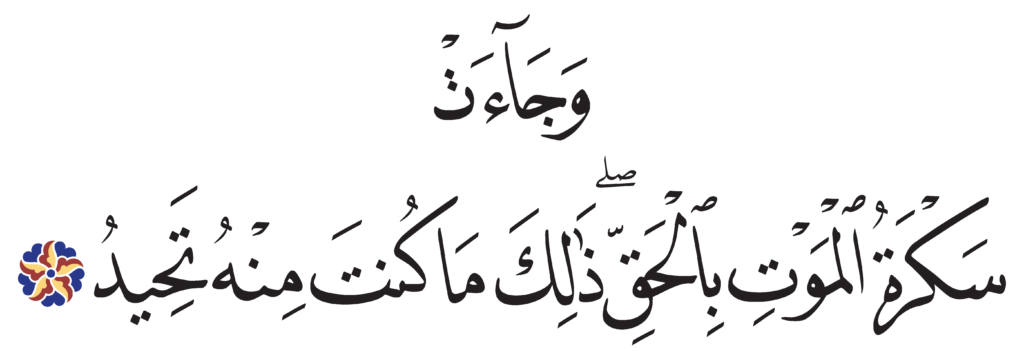 وَجَآءَتْ
سَكْرَةُ ٱلْمَوْتِ بِٱلْحَقِّ ۖ ذَٰلِكَ مَا كُنتَ مِنْهُ تَحِيدُ